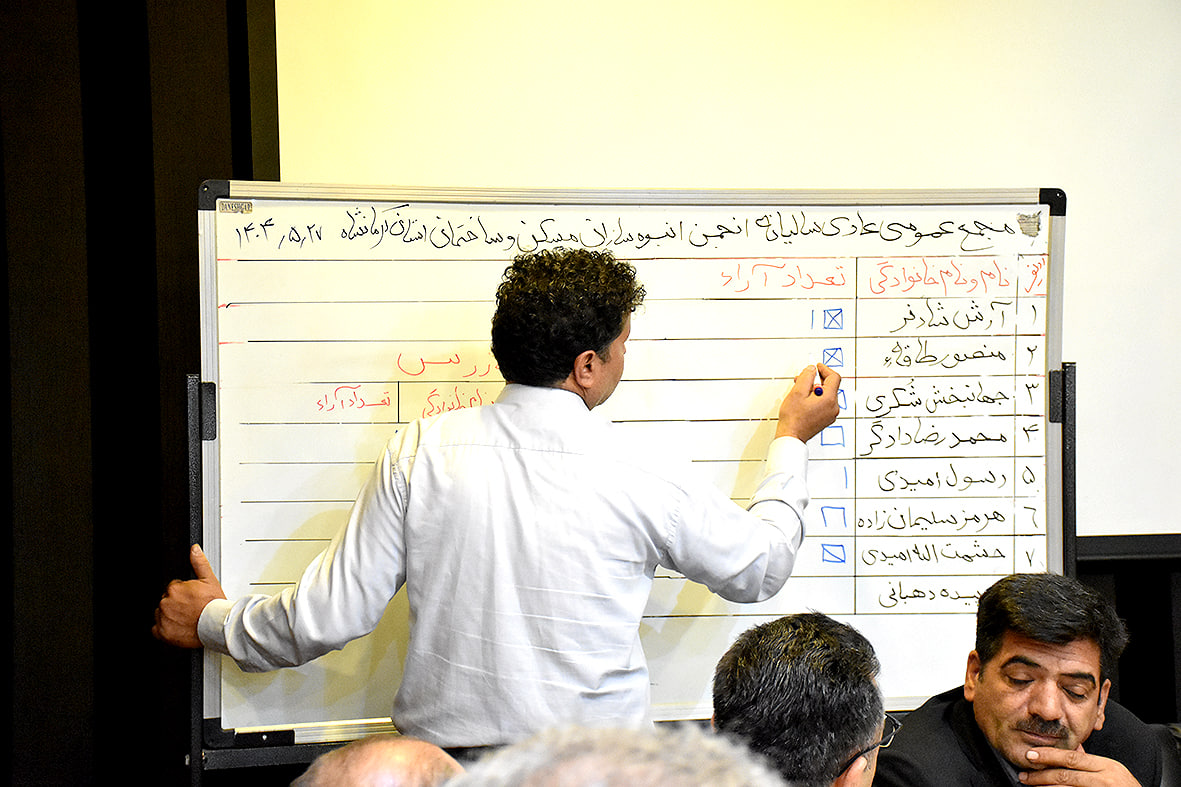 DANESHGAH
مجمع عمومی عادی سالیانه انجمن انبوه سازان مسکن و ساختمانی استان کرمانشاه ۱۴۰۴٫۵٫۲۷
نام و نام خانوادگی تعداد آراء
۱ آرش شادفر
۲ منصور طاقه‌ء
۳ جهانبخش شُکری
۴ محمدرضا دادگر
۵ رسول امیدی
۶ هرمز سلیمان زاده
۷ حشمت اله امیدی
دهبانی
تعداد آراء